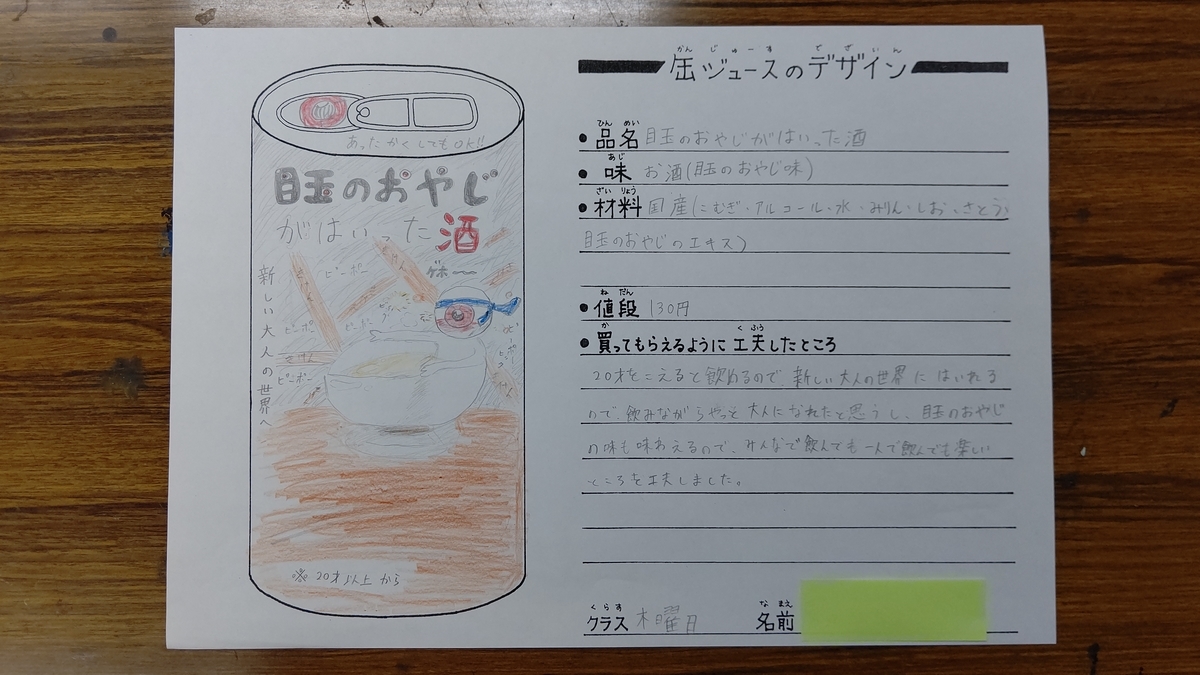 あったかくしてもOK!!
目玉のおやじ
がはいった酒
新しい大人の世界へ
ピーポー
ゲホ〜〜
ピーポー
※ 20才以上から
かんじゅーすでざいん
缶ジュースのデザイン
ひんめい
●品名 目玉のおやじがはいった酒
あじ
●味 お酒(目玉のおやじ味)
ざいりょう
●材料 国産(こむぎ・アルコール・水・みりん・しお・さとう・
目玉のおやじのエキス)
ねだん
●値段 130円
か くふう
●買ってもらえるように工夫したところ
20才をこえると飲めるので、新しい大人の世界にはいれる
ので、飲みながらやっと大人になれたと思うし、目玉のおやじ
の味も味わえるので、みんなで飲んでも一人で飲んでも楽しい
ところを工夫しました。
くらす なまえ
クラス 木曜日 名前